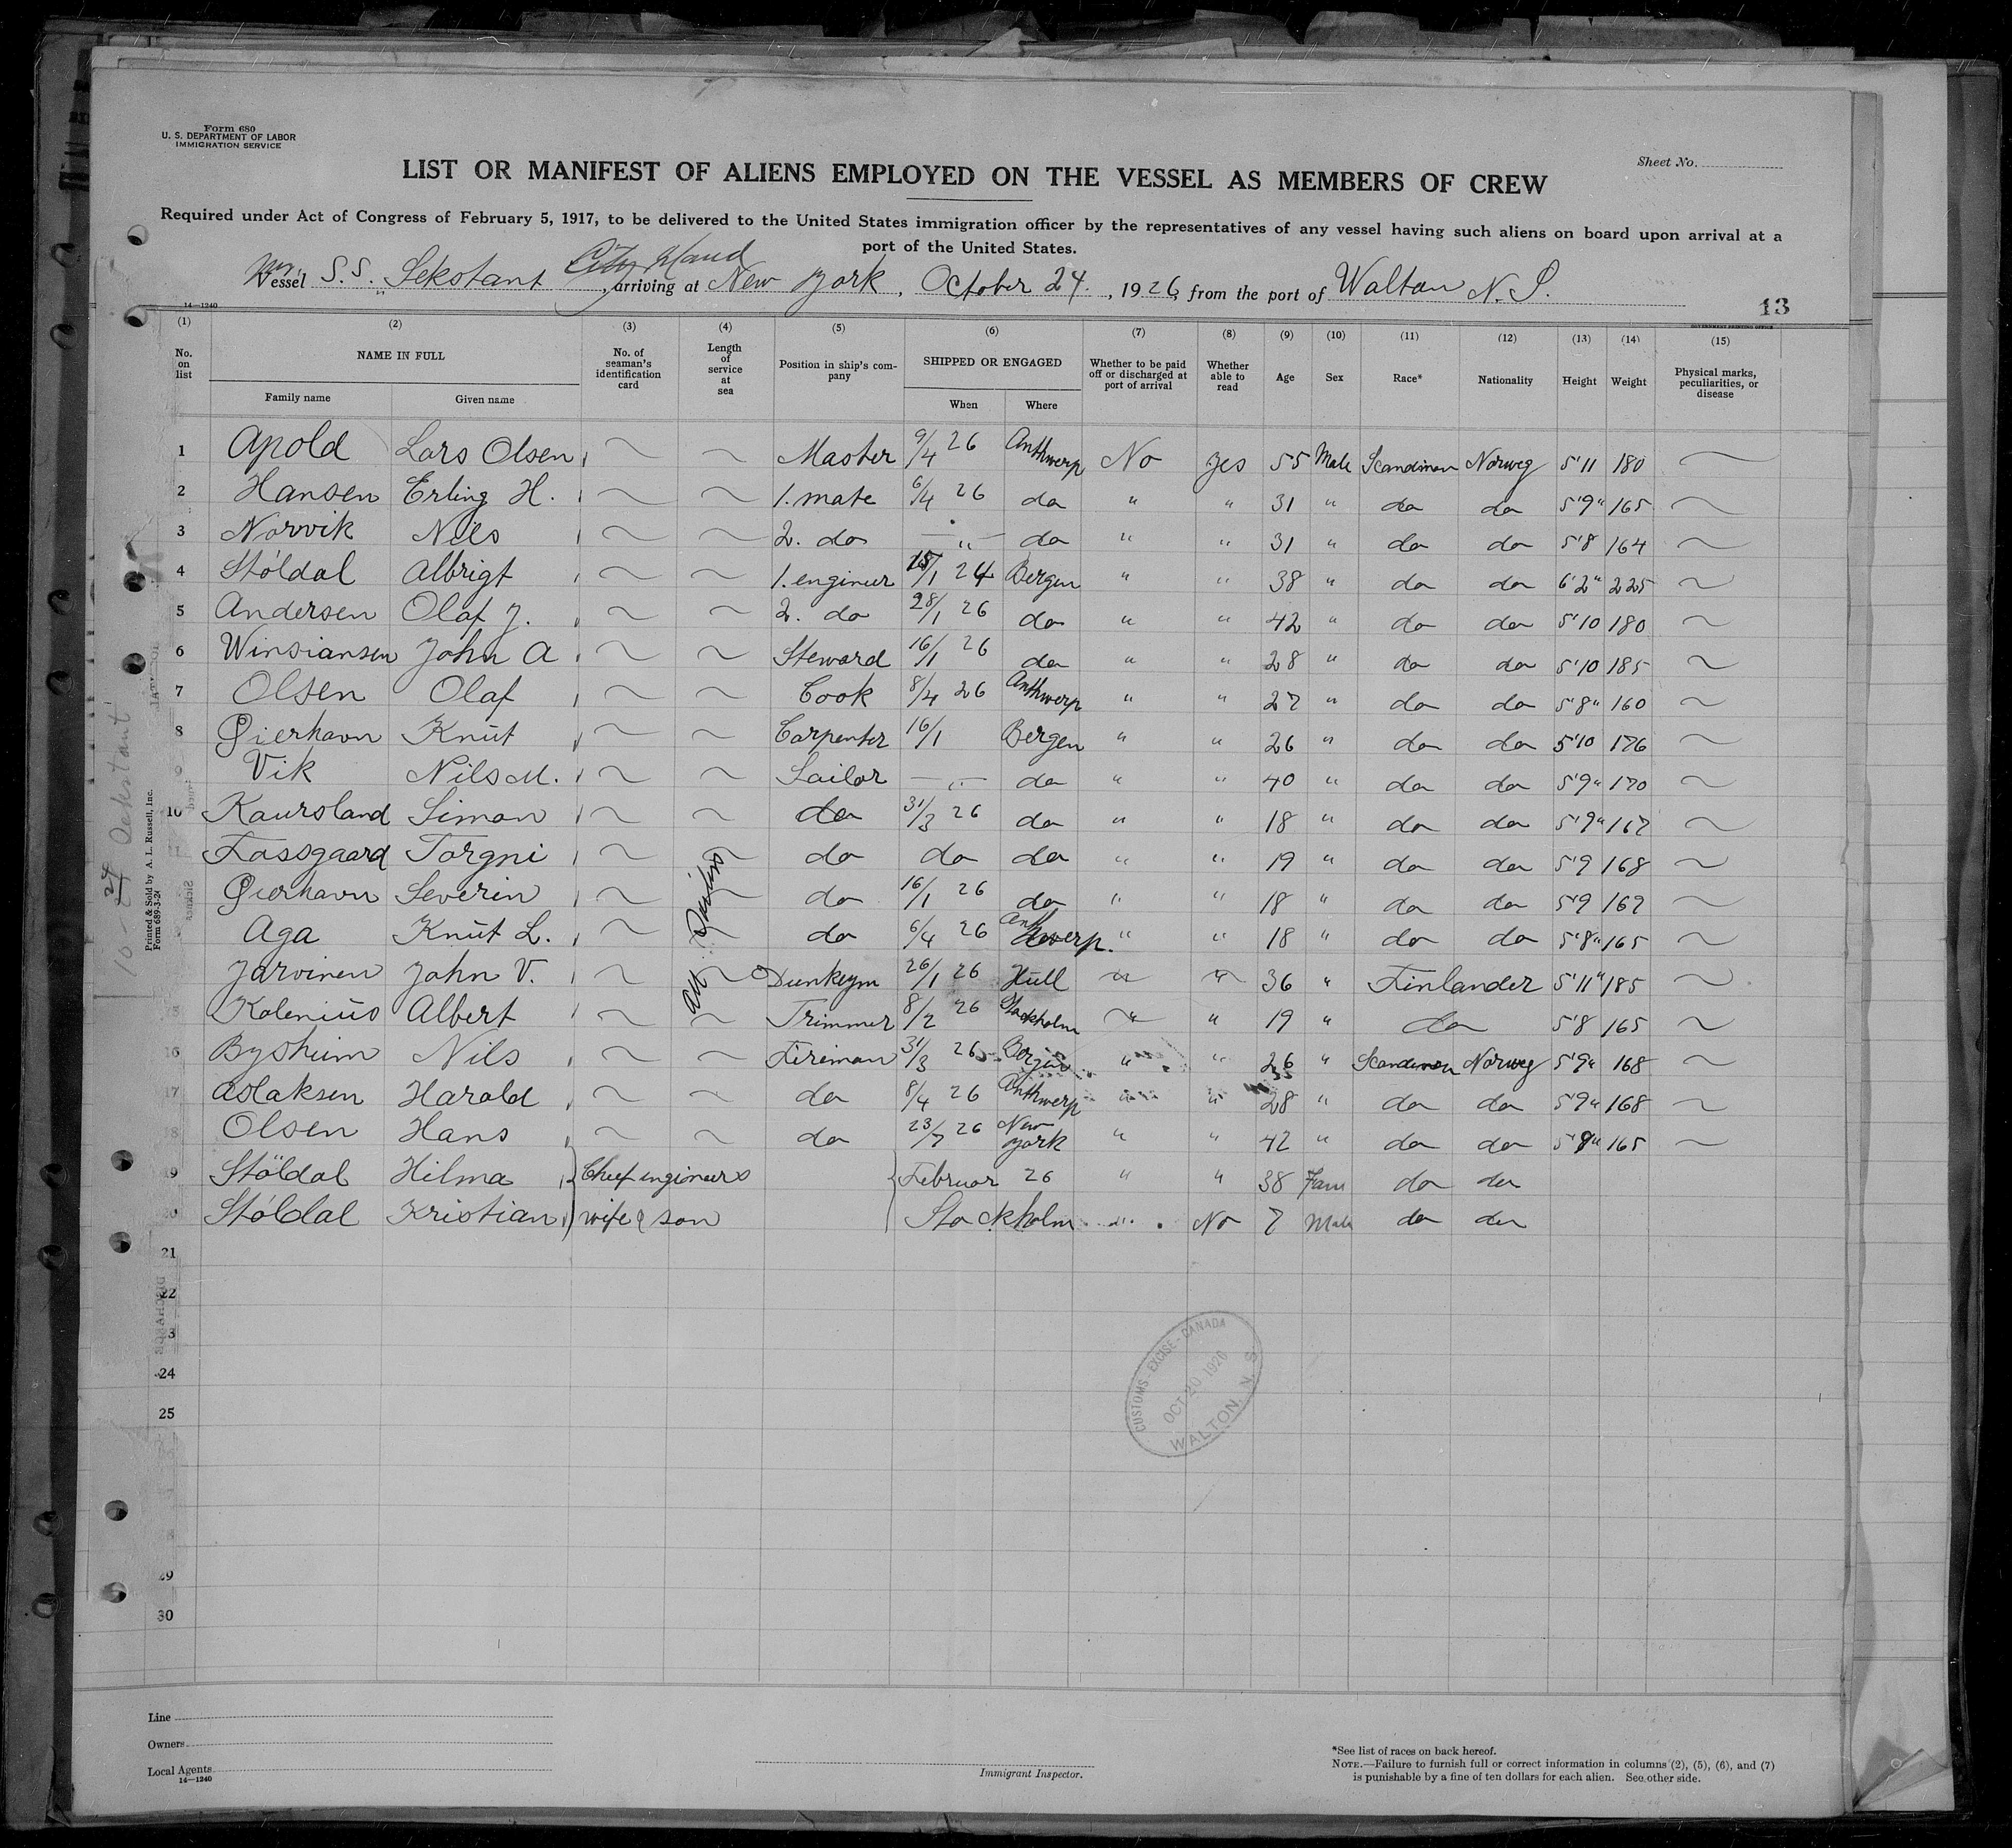 Form 680
U. S. DEPARTMENT OF LABOR
IMMIGRATION SERVICE
Sheet No.
LIST OR MANIFEST OF ALIENS EMPLOYED ON THE VESSEL AS MEMBERS OF CREW
Required under Act of Congress of February 5, 1917, to be delivered to the United States immigration officer by the representatives of any vessel having such aliens on board upon arrival at a
port of the United States.
City Island
Vessel S.S. Sekstant, arriving at New York, October 24, 1926, from the port of Walton N. S.
14—1240
13
GOVERNMENT PRINTING OFFICE
(1) (2) (3) (4) (5) (6) (7) (8) (9) (10) (11) (12) (13) (14) (15)
No. on list NAME IN FULL No. of seaman's identification card Length of service at sea Position in ship's company SHIPPED OR ENGAGED Whether to be paid off or discharged at port of arrival Whether able to read Age Sex Race* Nationality Height Weight Physical marks, peculiarities, or disease
Family name Given name When Where
1 Apold Lars Olsen Master 9/4 26 Anthwerp No yes 55 Male Scandinav Norweg 5'11 180
2 Hansen Erling H. 1. mate 6/4 26 do " " 31 " do do 5'9" 165
3 Norvik Nils 2. do — " — do " " 31 " do do 5'8 164
4 Stöldal Albrigt 1. engineer 15/1 24 Bergen " " 38 " do do 6'2" 225
5 Andersen Olaf J. 2. do 28/1 26 do " " 42 " do do 5'10 180
6 Winsiansen John A Steward 16/1 26 do " " 28 " do do 5'10 185
7 Olsen Olaf Cook 8/4 26 Anthwerp " " 27 " do do 5'8" 160
8 Gierhavn Knut Carpenter 16/1 Bergen " " 26 " do do 5'10 176
9 Vik Nils M. Sailor — " — do " " 40 " do do 5'9" 170
10 Kaursland Simon do 31/3 26 do " " 18 " do do 5'9" 167
11 Fossgaard Torgni do do do " " 19 " do do 5'9 168
Gierhavn Severin do 16/1 26 do " " 18 " do do 5'9 167
Aga Knut L. do 6/4 26 Anthwerp. " " 18 " do do 5'8" 165
Jarvinen John V. Dunkeym 26/1 26 Hull " " 36 " Finlander 5'11" 185
15 Kolenius Albert Trimmer 8/2 26 Stockholm " " 19 " do 5'8 165
16 Bysheim Nils Fireman 31/3 26 Bergen " " 26 " Scandinav Norweg 5'9" 168
17 Aslaksen Harald do 8/4 26 Anthwerp " " 28 " do do 5'9" 168
18 Olsen Hans do 23/7 26 New York " " 42 " do do 165
19 Stöldal Hilma Chief engineers Februar 26 " " 38 Fam do do
20 Stöldal Kristian wife & son Stockholm " No 7 Male do do
21
22
3
24
25
29
30
All
Printed & Sold by A. L. Russell, Inc.
Form 689-3-24
CUSTOMS-EXCISE-CANADA
OCT 20 1926
WALTON, N. S.
Line
Owners
Local Agents
14—1240
Immigrant Inspector.
*See list of races on back hereof.
NOTE.—Failure to furnish full or correct information in columns (2), (5), (6), and (7)
is punishable by a fine of ten dollars for each alien. See other side.